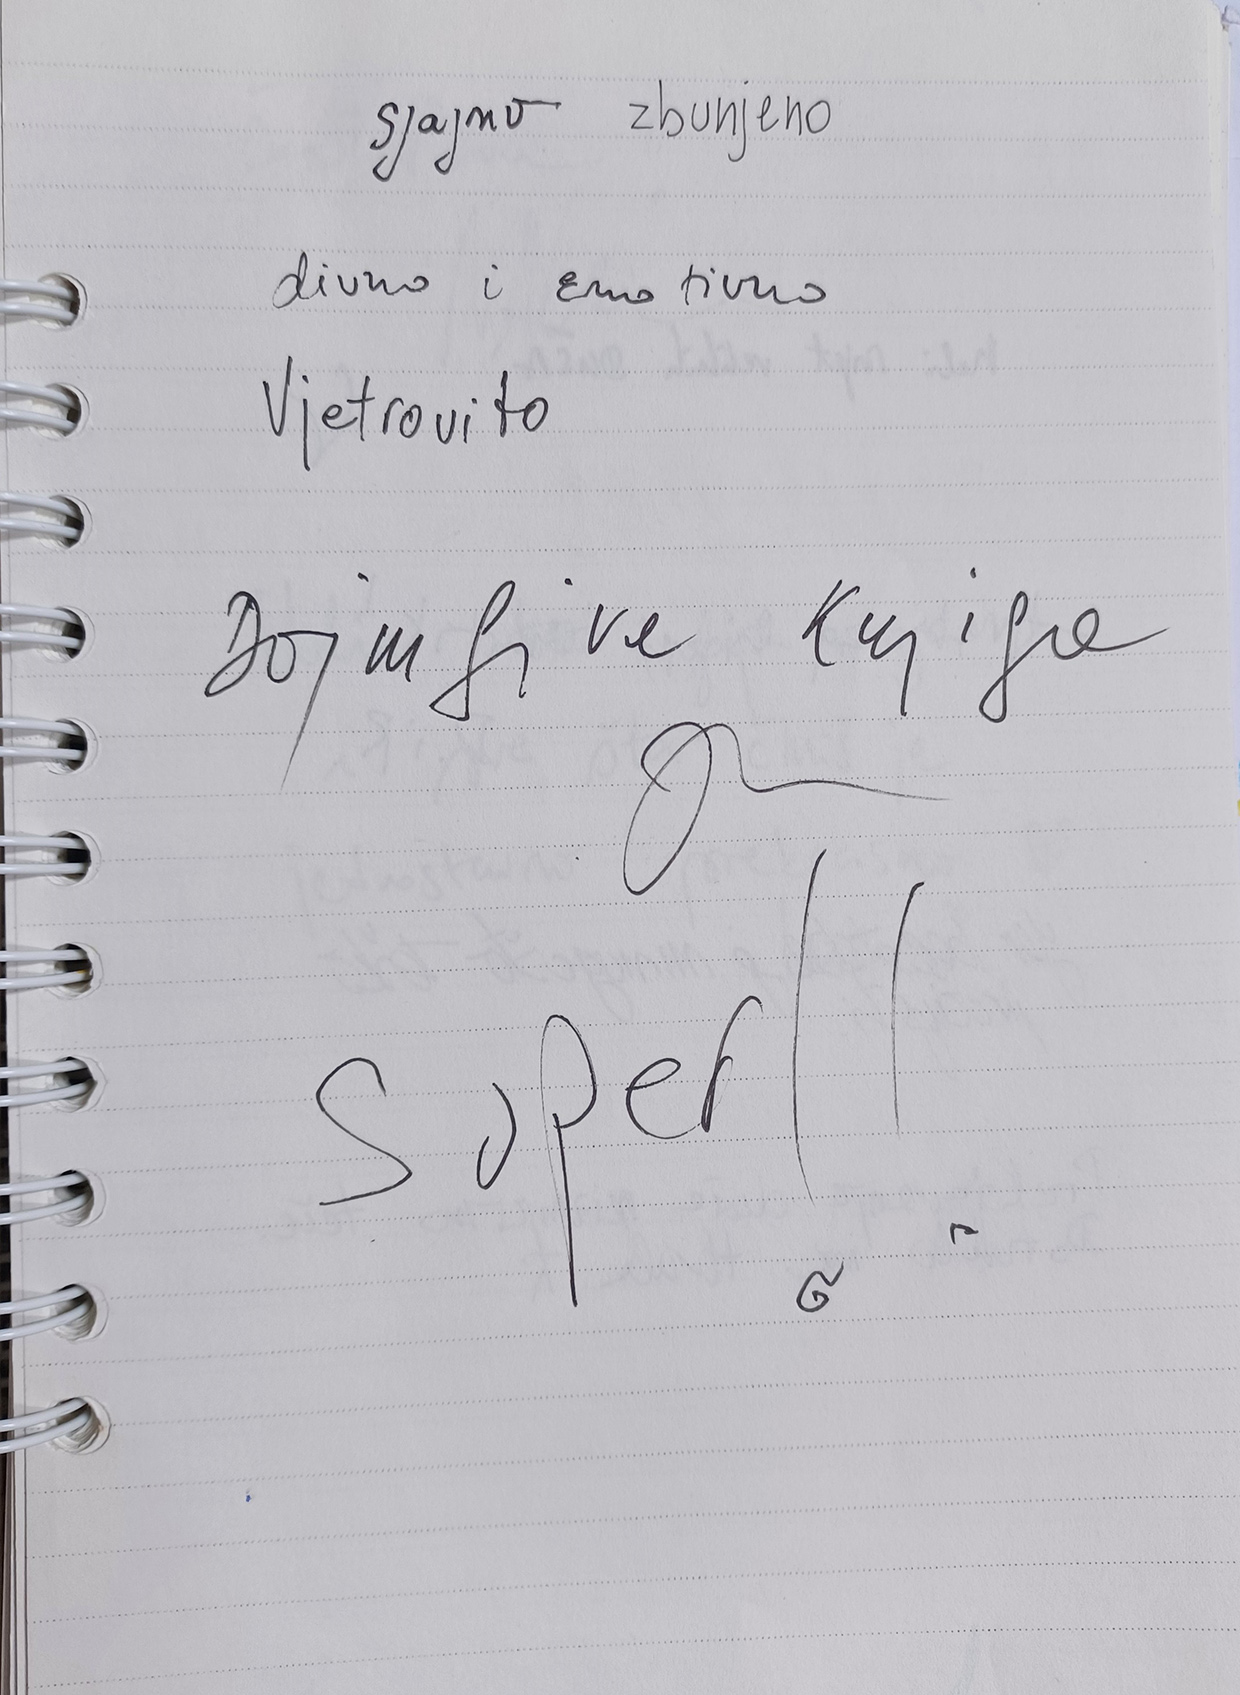 sjajno zbunjeno
divno i emotivno
Vjetrovito
Dojmljive knjige
Super!!